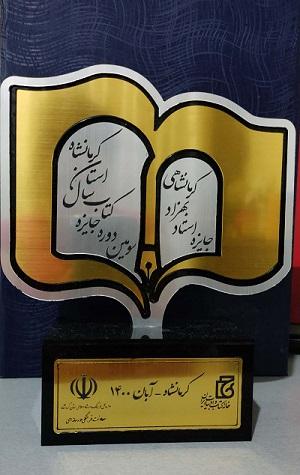 سومین دوره جایزه
کتاب سال
استان
کرمانشاه
جایزه استاد
بهزاد
کرمانشاهی
کرمانشاه - آبان ۱۴۰۰